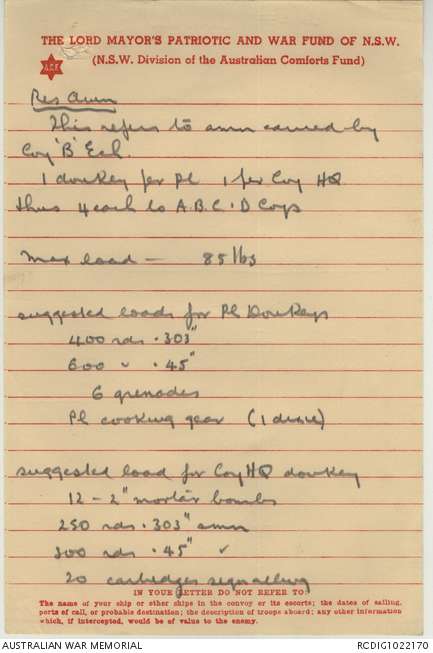 THE LORD MAYOR'S PATRIOTIC AND WAR FUND OF N.S.W.
(N.S.W. Division of the Australian Comforts Fund)
A.C.F.
Res Amm
This refers to amm carried by
Coy 'B' Ech.
1 donkey per Pl 1 per Coy HQ
thus 4 each to A.B.C.D Coys
Max load — 85 lbs
suggested loads for Pl Donkeys
400 rds .303"
600 " .45"
6 grenades
Pl cooking gear (1 dixie)
suggested load for Coy HQ donkey
12 - 2" mortar bombs
250 rds .303" amm
300 rds .45" "
20 cartridges signalling
IN YOUR LETTER DO NOT REFER TO:
The name of your ship or other ships in the convoy or its escorts; the dates of sailing,
ports of call, or probable destination; the description of troops aboard; any other information
which, if intercepted, would be of value to the enemy.
AUSTRALIAN WAR MEMORIAL
RCDIG1022170